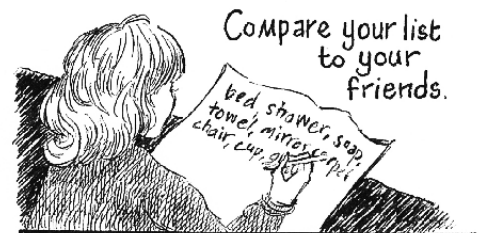 Compare your list
to your
friends.
bed shower, soap,
towel, mirror, carpet
chair, cup,